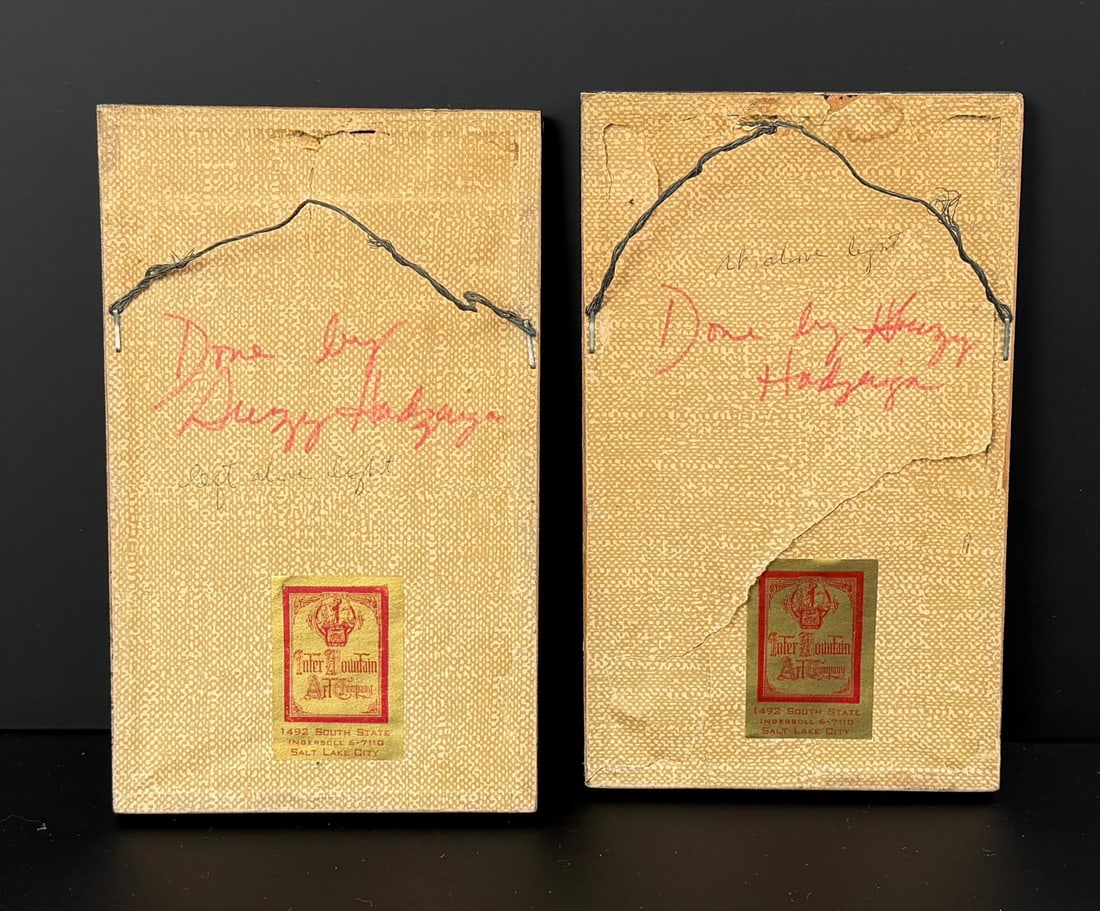 Done by
Hadzaiga
left above light
Inter Mountain
Art Company
1492 South State
Ingersoll 6-7110
Salt Lake City
above light
Done by
Hadzaiga
Inter Mountain
Art Company
1492 South State
Ingersoll 6-7110
Salt Lake City